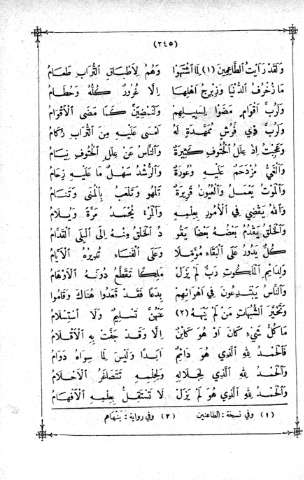 (٢٤٥)
وَلَقَدْ رَأَيْتُ الطَّاعِمِينَ (١) لِمَا اشْتَهَوْا وَهُمُ لِأَطْبَاقِ التُّرَابِ طَعَامُ
مَا زُخْرُفُ الدُّنْيَا وَزِبْرِجُ أَهْلِهَا إِلَّا غُرُورٌ كُلُّهُ وَحُطَامُ
وَلَرُبَّ أَقْوَامٍ مَضَوْا لِسَبِيلِهِمْ وَلَتَمْضِيَنَّ كَمَا مَضَى الْأَقْوَامُ
وَلَرُبَّ ذِي فُرُشٍ مُمَهَّدَةٍ لَهُ أَمْسَى عَلَيْهِ مِنَ التُّرَابِ رُكَامُ
وَعَجِبْتُ إِذْ عِلَلُ الْحُتُوفِ كَثِيرَةٌ وَالنَّاسُ عَنْ عِلَلِ الْحُتُوفِ نِيَامُ
وَالْغَيُّ مُزْدَحَمٌ عَلَيْهِ وُعُورَةٌ وَالرُّشْدُ سَهْلٌ مَا عَلَيْهِ زِحَامُ
وَالْمَوْتُ يَعْمَلُ وَالْعُيُونُ قَرِيرَةٌ تَلْهُو وَتَلْعَبُ بِالْمُنَى وَتَنَامُ
وَاللهُ يَقْضِي فِي الْأُمُورِ بِعِلْمِهِ وَالْمَرْءُ يُحْمَدُ مَرَّةً وَيُلَامُ
وَالْخَلْقُ يَقْدُمُ بَعْضُهُ بَعْضًا يَقُو دُ الْخَلْقَ مِنْهُ إِلَى الْبِلَى الْقُدَّامُ
كُلٌّ يَدُورُ عَلَى الْبَقَاءِ مُؤَمِّلًا وَعَلَى الْفَنَاءِ تُدِيرُهُ الْأَيَّامُ
وَلِدَائِمِ الْمَلَكُوتِ رَبٌّ لَمْ يَزَلْ مَلِكًا تَقَطَّعُ دُونَهُ الْأَوْهَامُ
وَالنَّاسُ يَبْتَدِعُونَ فِي أَهْوَائِهِمْ بِدَعًا فَقَدْ قَعَدُوا هُنَاكَ وَقَامُوا
وَتَخَيَّرَ الشُّبُهَاتِ مَنْ لَمْ يَنْهَهُ (٢) عَنْهُنَّ تَسْلِيمٌ وَلَا اسْتِسْلَامُ
مَا كُلُّ شَيْءٍ كَانَ أَوْ هُوَ كَائِنٌ إِلَّا وَقَدْ جَفَّتْ بِهِ الْأَقْلَامُ
فَالْحَمْدُ لِلهِ الَّذِي هُوَ دَائِمٌ أَبَدًا وَلَيْسَ لِمَا سِوَاهُ دَوَامُ
وَالْحَمْدُ لِلهِ الَّذِي لِجَلَالِهِ وَلِحِلْمِهِ تَتَصَاغَرُ الْأَحْلَامُ
وَالْحَمْدُ لِلهِ الَّذِي هُوَ لَمْ يَزَلْ لَا تَسْتَقِلُّ بِعِلْمِهِ الْأَفْهَامُ
(١) وفي نسخة : الطاعنين (٢) وفي رواية : ينهاهم